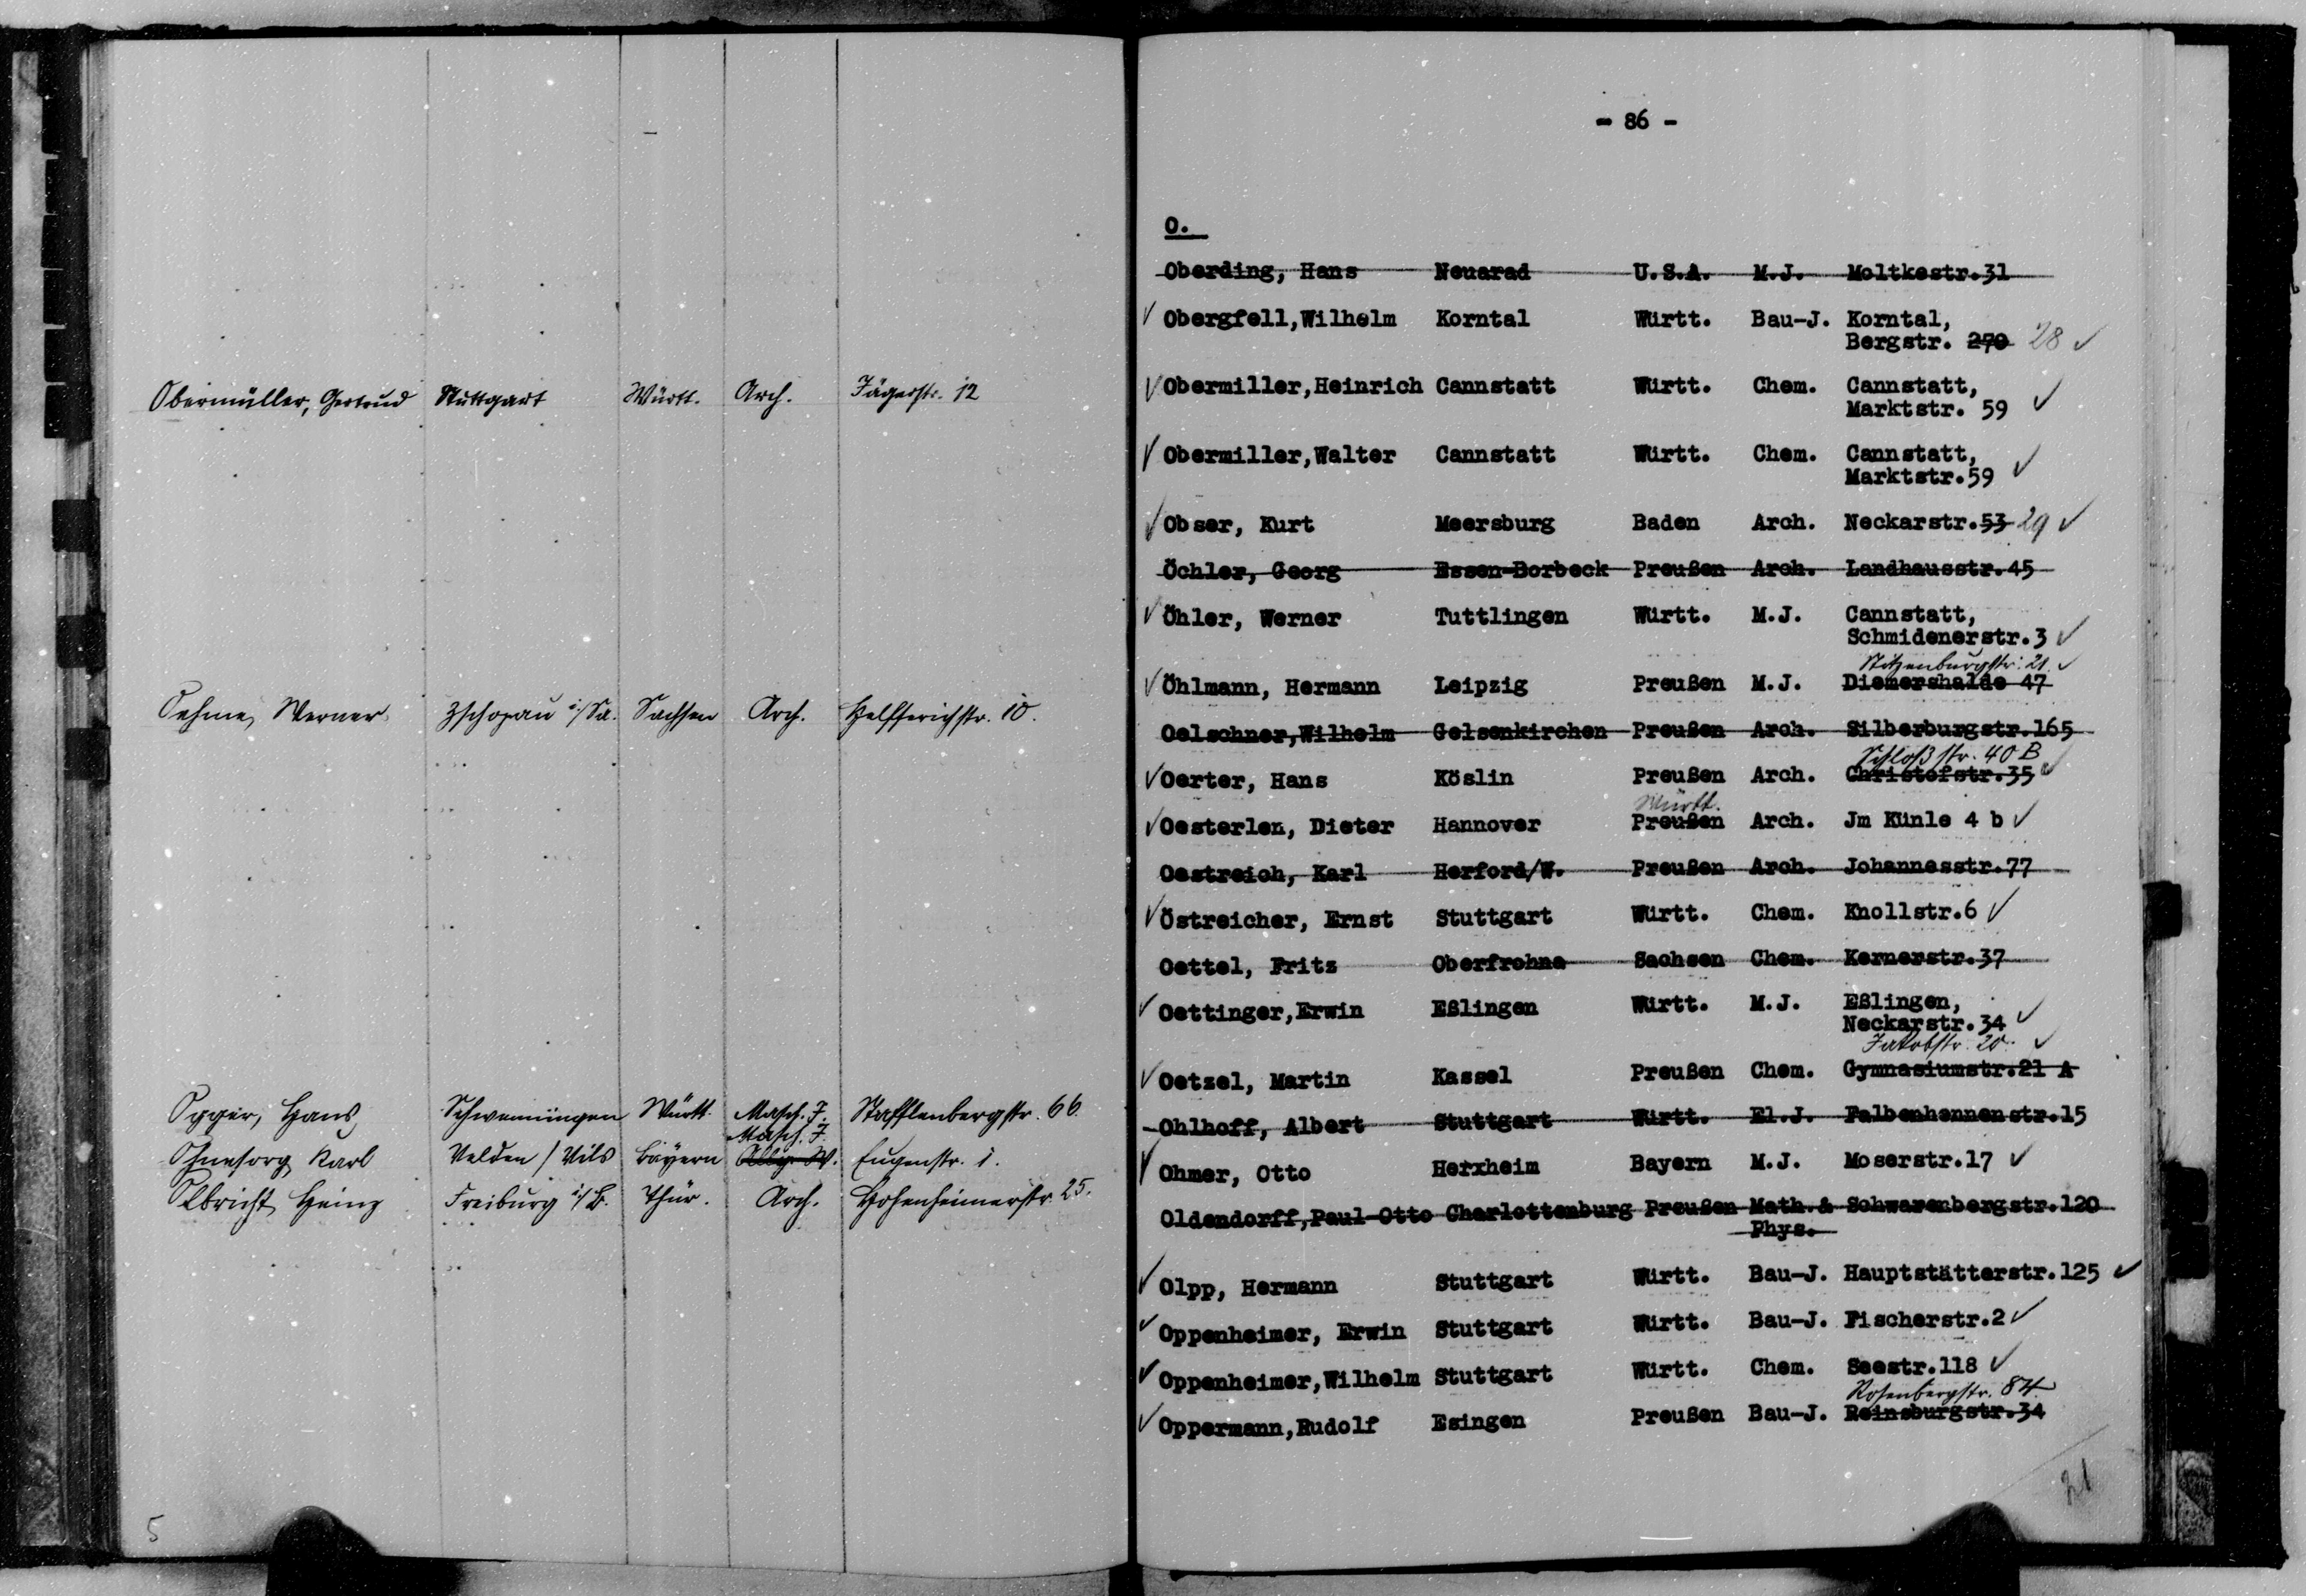 Obermüller, Gertrud Stuttgart Württ. Arch. Jägerstr. 12
Oehme, Werner Zschopau i/Sa. Sachsen Arch. Helfferichstr. 10.
Ogger, Hans Schwenningen Württ. Masch. J. Stafflenbergstr. 66
Masch. J.
Ohnesorg Karl Velden / Vils Bayern Allg. W. Eugenstr. 1.
Olbricht, Heinz Freiburg i/B. Thür. Arch. Hohenheimerstr. 25.
5
- 86 -
O.
Oberding, Hans Neuarad U.S.A. M.J. Moltkestr.31
Obergfell,Wilhelm Korntal Württ. Bau-J. Korntal,
Bergstr. 270 28
Obermiller,Heinrich Cannstatt Württ. Chem. Cannstatt,
Marktstr. 59
Obermiller,Walter Cannstatt Württ. Chem. Cannstatt,
Marktstr.59
Obser, Kurt Meersburg Baden Arch. Neckarstr.53 29
Öchler, Georg Essen-Borbeck Preußen Arch. Landhausstr.45
Öhler, Werner Tuttlingen Württ. M.J. Cannstatt,
Schmidenerstr.3
Stitzenburgstr. 21.
Öhlmann, Hermann Leipzig Preußen M.J. Diemershalde 47
Oelschner,Wilhelm Gelsenkirchen Preußen Arch. Silberburgstr.165
Schloßstr. 40 B
Oerter, Hans Köslin Preußen Arch. Christofstr.35
Württ.
Oesterlen, Dieter Hannover Preußen Arch. Jm Künle 4 b
Oestreich, Karl Herford/W. Preußen Arch. Johannesstr.77
Östreicher, Ernst Stuttgart Württ. Chem. Knollstr.6
Oettel, Fritz Oberfrohna Sachsen Chem. Kernerstr.37
Oettinger,Erwin Eßlingen Württ. M.J. Eßlingen,
Neckarstr.34
Jakobstr. 20.
Oetzel, Martin Kassel Preußen Chem. Gymnasiumstr.21 A
Ohlhoff, Albert Stuttgart Württ. El.J. Falbenhennenstr.15
Ohmer, Otto Herxheim Bayern M.J. Moserstr.17
Oldendorff,Paul Otto Charlottenburg Preußen Math.& Schwarenbergstr.120
Phys.
Olpp, Hermann Stuttgart Württ. Bau-J. Hauptstätterstr.125
Oppenheimer, Erwin Stuttgart Württ. Bau-J. Fischerstr.2
Oppenheimer,Wilhelm Stuttgart Württ. Chem. Seestr.118
Rosenbergstr. 84
Oppermann,Rudolf Esingen Preußen Bau-J. Reinsburgstr.34
21